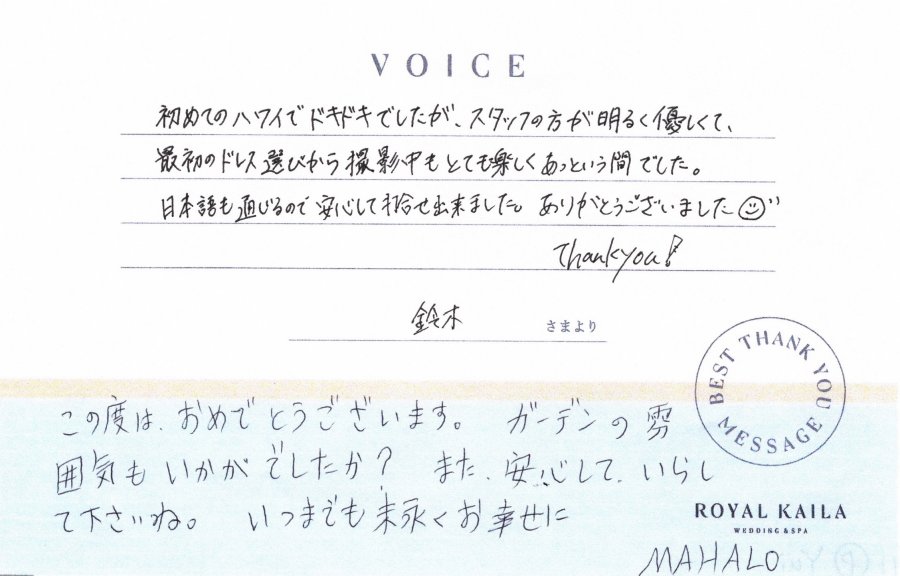 VOICE
初めてのハワイでドキドキでしたが、スタッフの方が明るく優しくて、
最初のドレス選びから撮影中もとても楽しくあっという間でした。
日本語も通じるので安心してお任せ出来ました。ありがとうございました
Thank you!
鈴木 さまより
BEST THANK YOU MESSAGE
この度は、おめでとうございます。 ガーデンの雰
囲気もいかがでしたか? また、安心して、いらし
て下さいね。 いつまでも末永くお幸せに
ROYAL KAILA
WEDDING & SPA
MAHALO